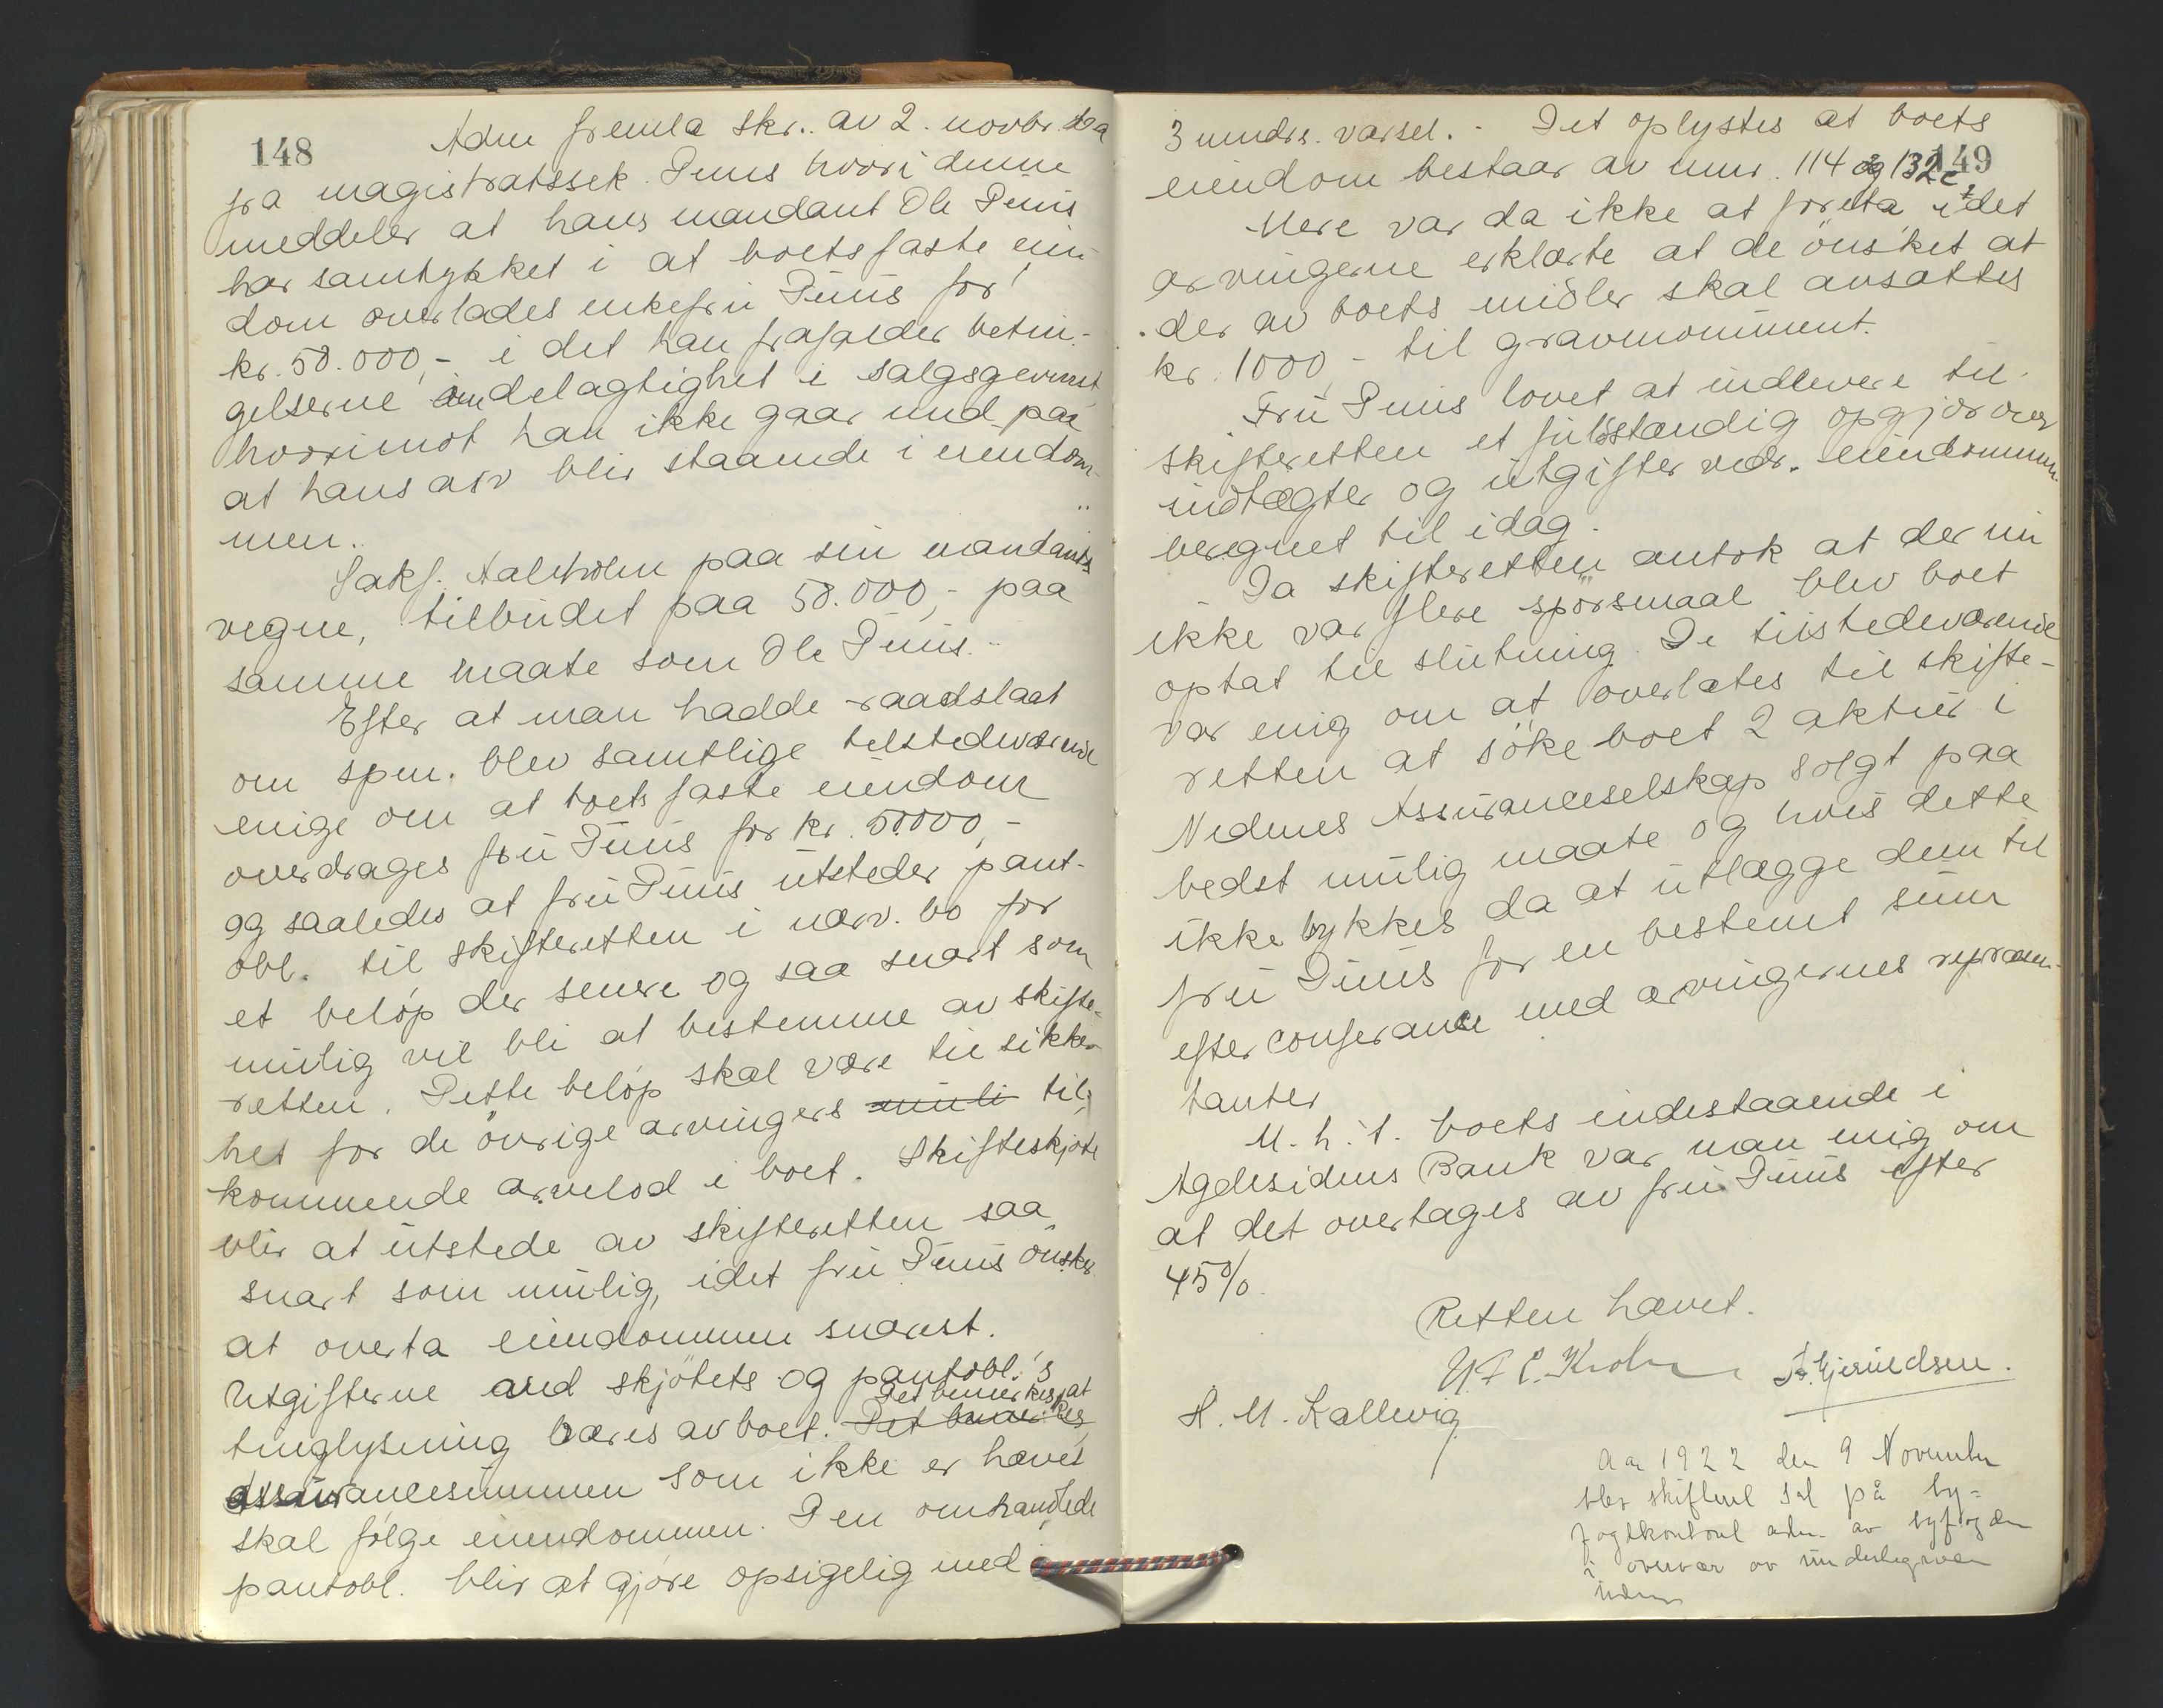 148
Adm fremla skr. av 2. novbr. da
fra magistratssek. Puus hvori denne
meddeler at hans mandant Ole Puus
har samtykket i at boets faste ein-
dom overlades enkefru Puus for
kr. 50.000,- i det han frafalder betin-
gelserne andelagtighet i salgsgevinst,
hvorimot han ikke gaar ind paa
at hans arv blir staaende i eiendom-
men.
Sakf. Aalholm paa sin mandants
vegne, tilbudet paa 50.000,- paa
samme maate som Ole Puus.-
Efter at man hadde raadslaat
om spm. blev samtlige tilstedeværende
enige om at boets faste eiendom
overdrages fru Puus for kr. 50000,-
og saaledes at fru Puus utsteder pant-
obl. til skifteretten i nærv. bo for
et beløp der senere og saa snart som
mulig vil bli at bestemme av skifte-
retten. Dette beløp skal være til sikker-
het for de øvrige arvingers muli til-
kommende arvelod i boet. Skifteskjøte
blir at utstede av skifteretten saa
snart som mulig, idet fru Puus ønsker
at overta eiendommen snarest.
Utgifterne med skjøtets og pantobl.'s
tinglysning bæres av boet. Det bemerkes Det bemerkes, at
assurancesummen som ikke er hævet
skal følge eiendommen. Den omhandlede
pantobl. blir at gjøre opsigelig med
149
3 mndrs. varsel. - Det oplystes at boets
eiendom bestaar av mnr. 114 og 132c
Mere var da ikke at foreta idet
arvingerne erklærte at de ønsket at
der av boets midler skal avsættes
kr. 1000,- til gravmonument.
Fru Puus lovet at indlevere til
skifteretten et fuldstændig opgjør over
indtægter og utgifter vedr. eiendommen
beregnet til idag.
Da skifteretten antok at der nu
ikke var flere spørsmaal blev boet
optat til slutning. De tilstedeværende
var enig om at overlates til skifte-
retten at søke boet 2 aktier i
Nedenes Assuranceselskap solgt paa
bedst mulig maate og hvis dette
ikke lykkes da at utlægge dem til
fru Puus for en bestemt sum
efter conferance med arvingernes repræsen-
tanter
M. h. t. boets indestaaende i
Agdesidens Bank var man enig om
at det overtages av fru Puus efter
45%.
Retten hævet.
H. M. Kallevig
Aar 1922 den 9 November
blev skifteret sat på by-
fogdkontoret adm. av byfogden
i overvær av undertegnede